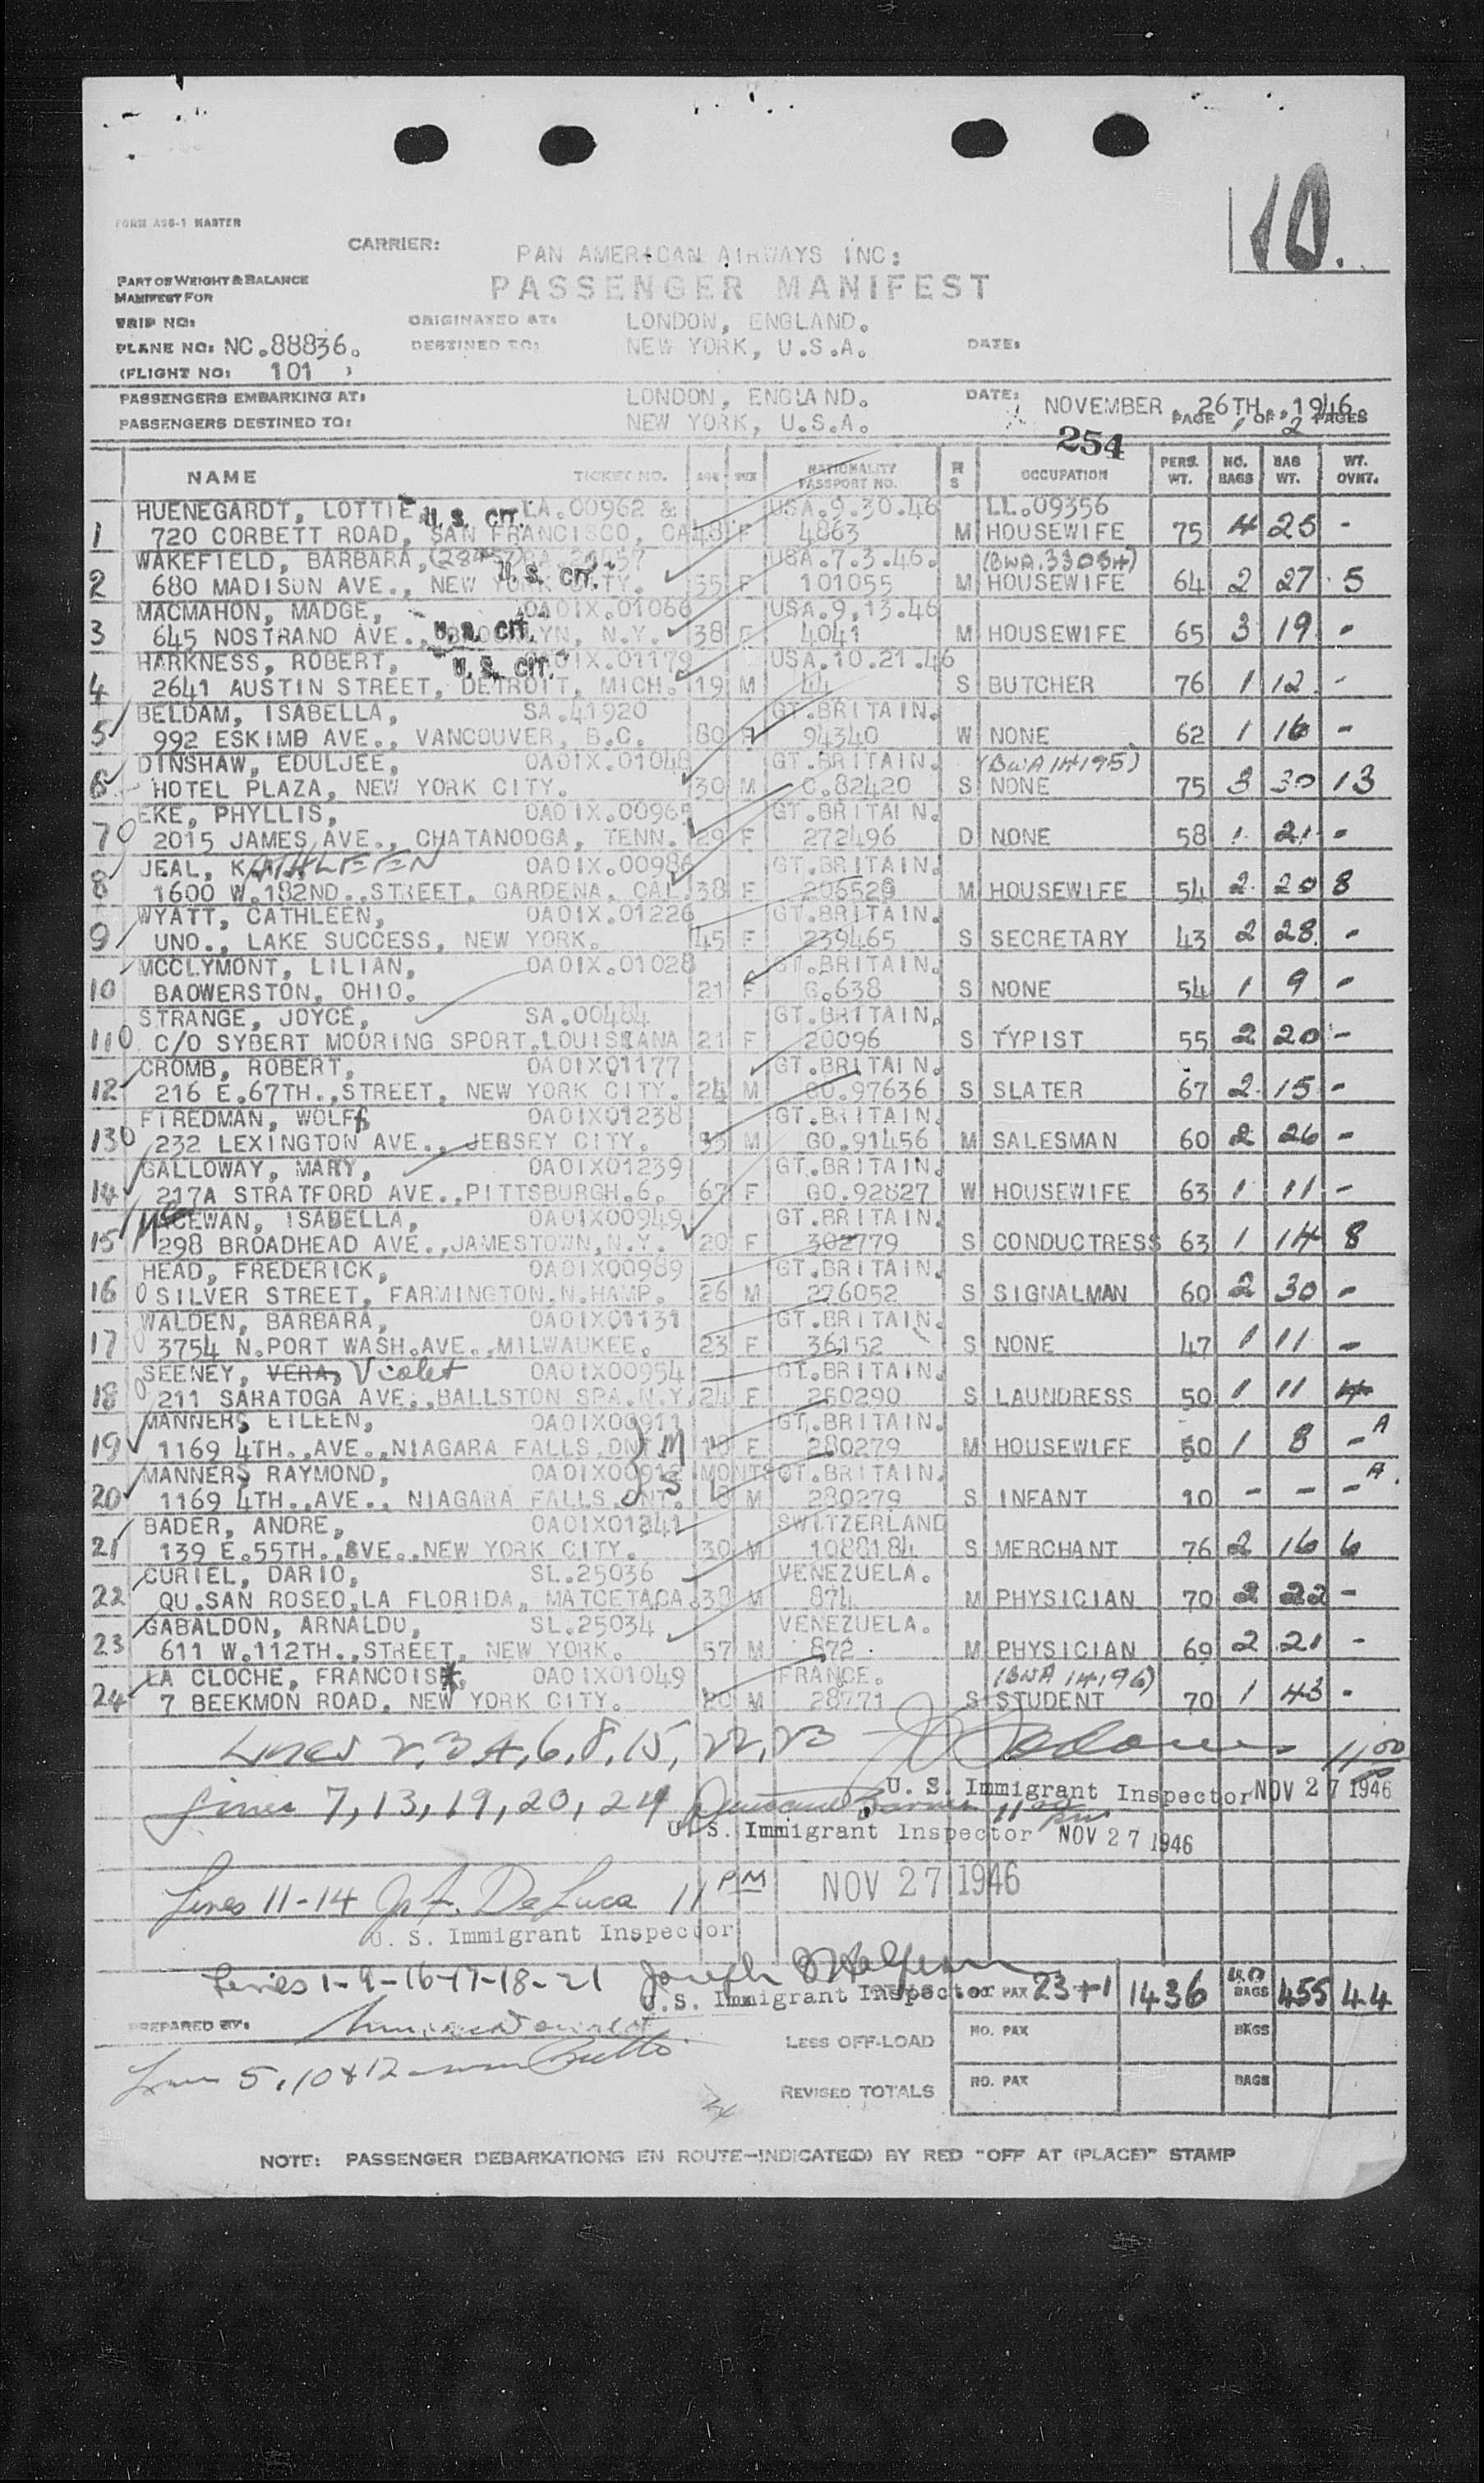 10.
FORM A96-1 MASTER
CARRIER: PAN AMERICAN AIRWAYS INC:
PART OF WEIGHT & BALANCE
MANIFEST FOR
PASSENGER MANIFEST
TRIP NO: ORIGINATED AT: LONDON, ENGLAND.
PLANE NO: NC.88836. DESTINED TO: NEW YORK, U.S.A. DATE:
(FLIGHT NO: 101 )
PASSENGERS EMBARKING AT: LONDON, ENGLAND. DATE: NOVEMBER 26TH., 1946.
PASSENGERS DESTINED TO: NEW YORK, U.S.A. PAGE 1 OF 2 PAGES
254
NAME TICKET NO. AGE SEX NATIONALITY PASSPORT NO. M S OCCUPATION PERS. WT. NO. BAGS BAG WT. WT. OVNT.
HUENEGARDT, LOTTIE, U.S. CIT. LA.00962 & USA.9.30.46 LL.09356
1 720 CORBETT ROAD, SAN FRANCISCO, CA 48 F 4863 M HOUSEWIFE 75 4 25 -
WAKEFIELD, BARBARA, USA.7.3.46. (BWA.33054)
2 680 MADISON AVE., NEW YORK CITY. U.S. CIT. 35 F 101055 M HOUSEWIFE 64 2 27 5
MACMAHON, MADGE, OAOIX.01066 USA.9.13.46
3 645 NOSTRAND AVE., BROOKLYN, N.Y. U.S. CIT. 38 F 4041 M HOUSEWIFE 65 3 19 -
HARKNESS, ROBERT, U.S. CIT. OAOIX.01179 USA.10.21.46
4 2641 AUSTIN STREET, DETROIT, MICH. 19 M 44 S BUTCHER 76 1 12 -
BELDAM, ISABELLA, SA.41920 GT.BRITAIN.
5 992 ESKIMB AVE., VANCOUVER, B.C. 80 F 94340 W NONE 62 1 16 -
DINSHAW, EDULJEE, OAOIX.01048 GT.BRITAIN. (BWA 14195)
6 HOTEL PLAZA, NEW YORK CITY. 30 M C.82420 S NONE 75 3 30 13
EKE, PHYLLIS, OAOIX.00965 GT.BRITAIN.
7 2015 JAMES AVE., CHATANOOGA, TENN. 29 F 272496 D NONE 58 1 21 -
JEAL, KATHLEEN OAOIX.00986 GT.BRITAIN.
8 1600 W.182ND.,STREET, GARDENA, CAL. 38 F 206529 M HOUSEWIFE 54 2 20 8
WYATT, CATHLEEN, OAOIX.01226 GT.BRITAIN.
9 UNO., LAKE SUCCESS, NEW YORK. 45 F 239465 S SECRETARY 43 2 28 -
MCCLYMONT, LILIAN, OAOIX.01028 GT.BRITAIN.
10 BAOWERSTON, OHIO. 21 F G.638 S NONE 54 1 9 -
STRANGE, JOYCE, SA.00484 GT.BRITAIN.
11 C/O SYBERT MOORING SPORT,LOUISIANA 21 F 20096 S TYPIST 55 2 20 -
CROMB, ROBERT, OAOIX01177 GT.BRITAIN.
12 216 E.67TH.,STREET, NEW YORK CITY. 24 M GO.97636 S SLATER 67 2 15 -
FIREDMAN, WOLFF OAOIX01238 GT.BRITAIN.
13 232 LEXINGTON AVE., JERSEY CITY. 55 M GO.91456 M SALESMAN 60 2 26 -
GALLOWAY, MARY, OAOIX01239 GT.BRITAIN.
14 217A STRATFORD AVE.,PITTSBURGH.6. 67 F GO.92827 W HOUSEWIFE 63 1 11 -
MCEWAN, ISABELLA, OAOIX00949 GT.BRITAIN.
15 298 BROADHEAD AVE.,JAMESTOWN,N.Y. 20 F 302779 S CONDUCTRESS 63 1 14 8
HEAD, FREDERICK, OAOIX00989 GT.BRITAIN.
16 SILVER STREET, FARMINGTON.N.HAMP. 26 M 276052 S SIGNALMAN 60 2 30 -
WALDEN, BARBARA, OAOIX01131 GT.BRITAIN.
17 3754 N.PORT WASH.AVE.,MILWAUKEE. 23 F 36152 S NONE 47 1 11 -
SEENEY, VERA, Violet OAOIX00954 GT.BRITAIN.
18 211 SARATOGA AVE.,BALLSTON SPA.N.Y. 24 F 260290 S LAUNDRESS 50 1 11
MANNERS EILEEN, OAOIX00911 GT.BRITAIN. A
19 1169 4TH.,AVE.,NIAGARA FALLS.ONT. M 18 F 280279 M HOUSEWIFE 50 1 8 -
MANNERS RAYMOND, OAOIX00912 S MONTS GT.BRITAIN. A
20 1169 4TH.,AVE., NIAGARA FALLS.ONT. 8 M 280279 S INFANT 10 - - -
BADER, ANDRE, OAOIX01241 SWITZERLAND
21 139 E.55TH.,AVE.,NEW YORK CITY. 30 M 1088184 S MERCHANT 76 2 16 6
CURIEL, DARIO, SL.25036 VENEZUELA.
22 QU.SAN ROSEO,LA FLORIDA, MATCETACA. 38 M 874 M PHYSICIAN 70 2 22 -
GABALDON, ARNALDO, SL.25034 VENEZUELA.
23 611 W.112TH.,STREET, NEW YORK. 37 M 872 M PHYSICIAN 69 2 21 -
LA CLOCHE, FRANCOIS OAOIX01049 FRANCE. (BWA 14196)
24 7 BEEKMON ROAD, NEW YORK CITY. 20 M 28771 S STUDENT 70 1 43 -
Lines 2, 3 4, 6, 8, 15, 22, 23 11.00
U. S. Immigrant Inspector NOV 27 1946
Lines 7, 13, 19, 20, 24 11 pm
U. S. Immigrant Inspector NOV 27 1946
Lines 11-14 De Luca 11 PM NOV 27 1946
U. S. Immigrant Inspector
Lines 1-9-16-17-18-21 Joseph
U.S. Immigrant Inspector PAX 23+1 1436 40 BAGS 455 44
PREPARED BY:
LESS OFF-LOAD NO. PAX BAGS
Lines 5, 10 & 12
REVISED TOTALS NO. PAX BAGS
NOTE: PASSENGER DEBARKATIONS EN ROUTE-INDICATE(D) BY RED "OFF AT (PLACE)" STAMP